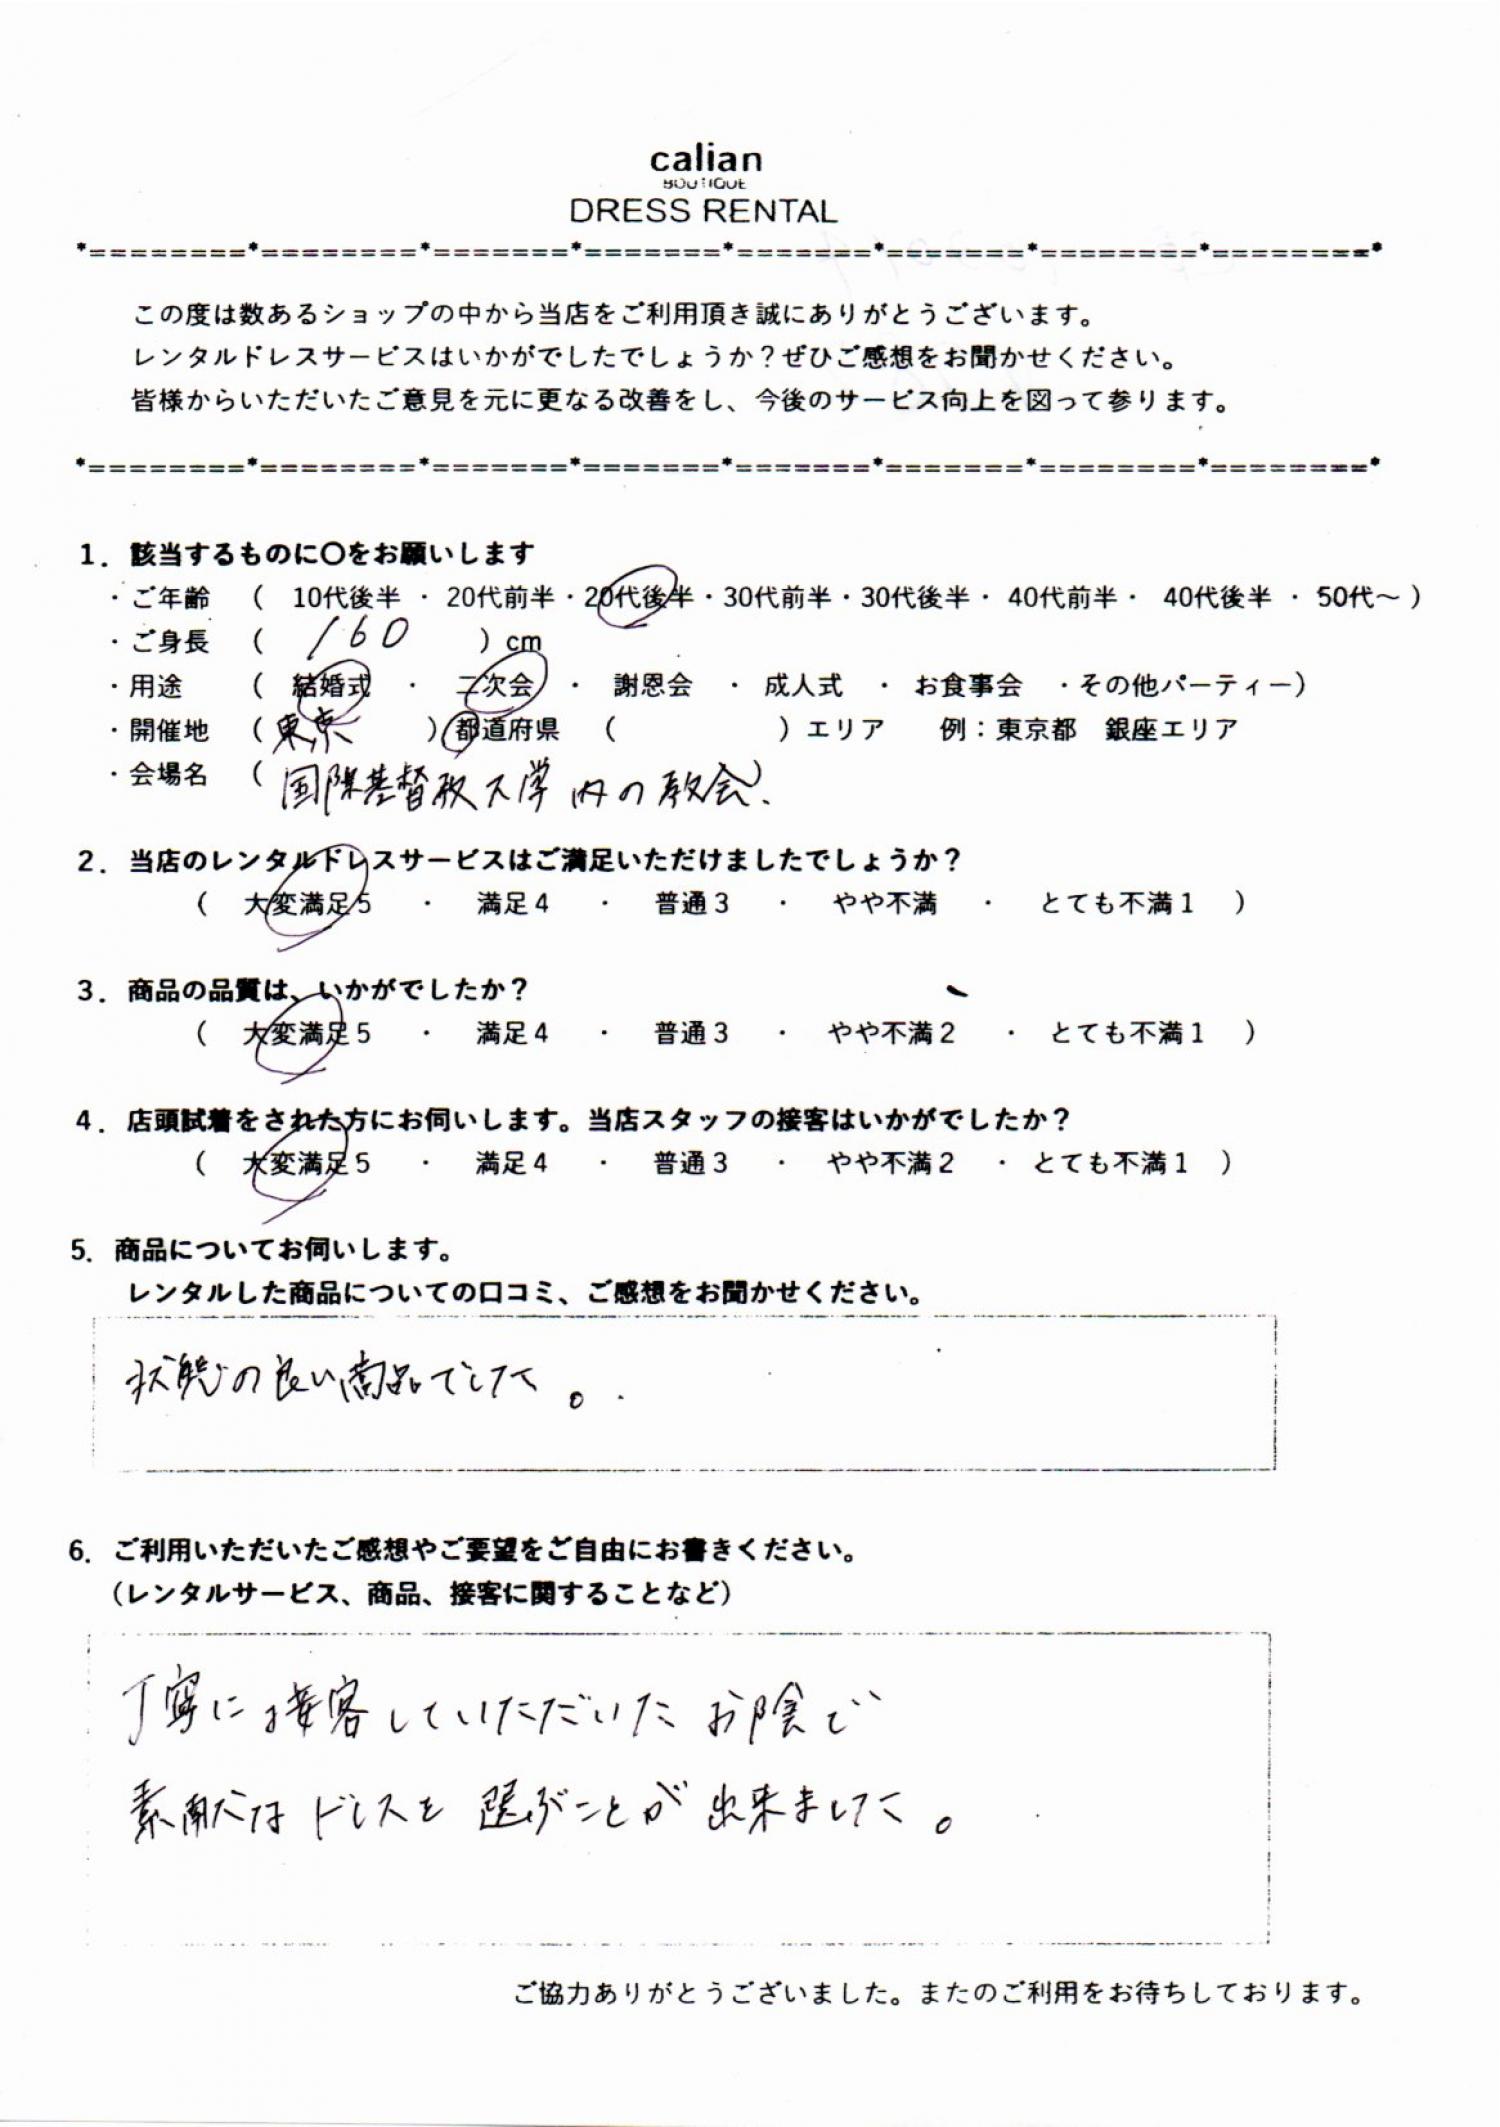 calian
BOUTIQUE
DRESS RENTAL
*========*========*=======*=======*=======*=======*========*========*
この度は数あるショップの中から当店をご利用頂き誠にありがとうございます。
レンタルドレスサービスはいかがでしたでしょうか？ぜひご感想をお聞かせください。
皆様からいただいたご意見を元に更なる改善をし、今後のサービス向上を図って参ります。
*========*========*=======*=======*=======*=======*========*========*
1．該当するものに〇をお願いします
・ご年齢 （ 10代後半 ・ 20代前半・20代後半・30代前半・30代後半・ 40代前半・ 40代後半 ・ 50代～ ）
・ご身長 （ 160 ）cm
・用途 （ 結婚式 ・ 二次会 ・ 謝恩会 ・ 成人式 ・ お食事会 ・その他パーティー）
・開催地 （ 東京 ）都道府県 （ ）エリア 例：東京都 銀座エリア
・会場名 （ 国際基督教大学内の教会 ）
2．当店のレンタルドレスサービスはご満足いただけましたでしょうか？
（ 大変満足5 ・ 満足4 ・ 普通3 ・ やや不満 ・ とても不満1 ）
3．商品の品質は、いかがでしたか？
（ 大変満足5 ・ 満足4 ・ 普通3 ・ やや不満2 ・ とても不満1 ）
4．店頭試着をされた方にお伺いします。当店スタッフの接客はいかがでしたか？
（ 大変満足5 ・ 満足4 ・ 普通3 ・ やや不満2 ・ とても不満1 ）
5．商品についてお伺いします。
レンタルした商品についての口コミ、ご感想をお聞かせください。
状態の良い商品でした。
6．ご利用いただいたご感想やご要望をご自由にお書きください。
（レンタルサービス、商品、接客に関することなど）
丁寧に接客していただいたお陰で
素敵なドレスを選ぶことが出来ました。
ご協力ありがとうございました。またのご利用をお待ちしております。